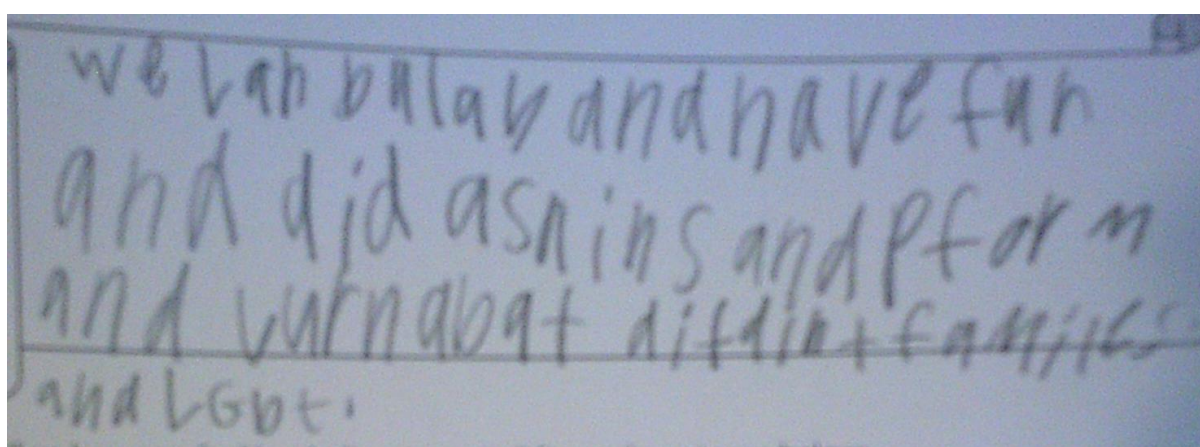 we Lah bulab and have fun
and did asnins and Pform
and Lurn abat difdint familes
and LGbt.